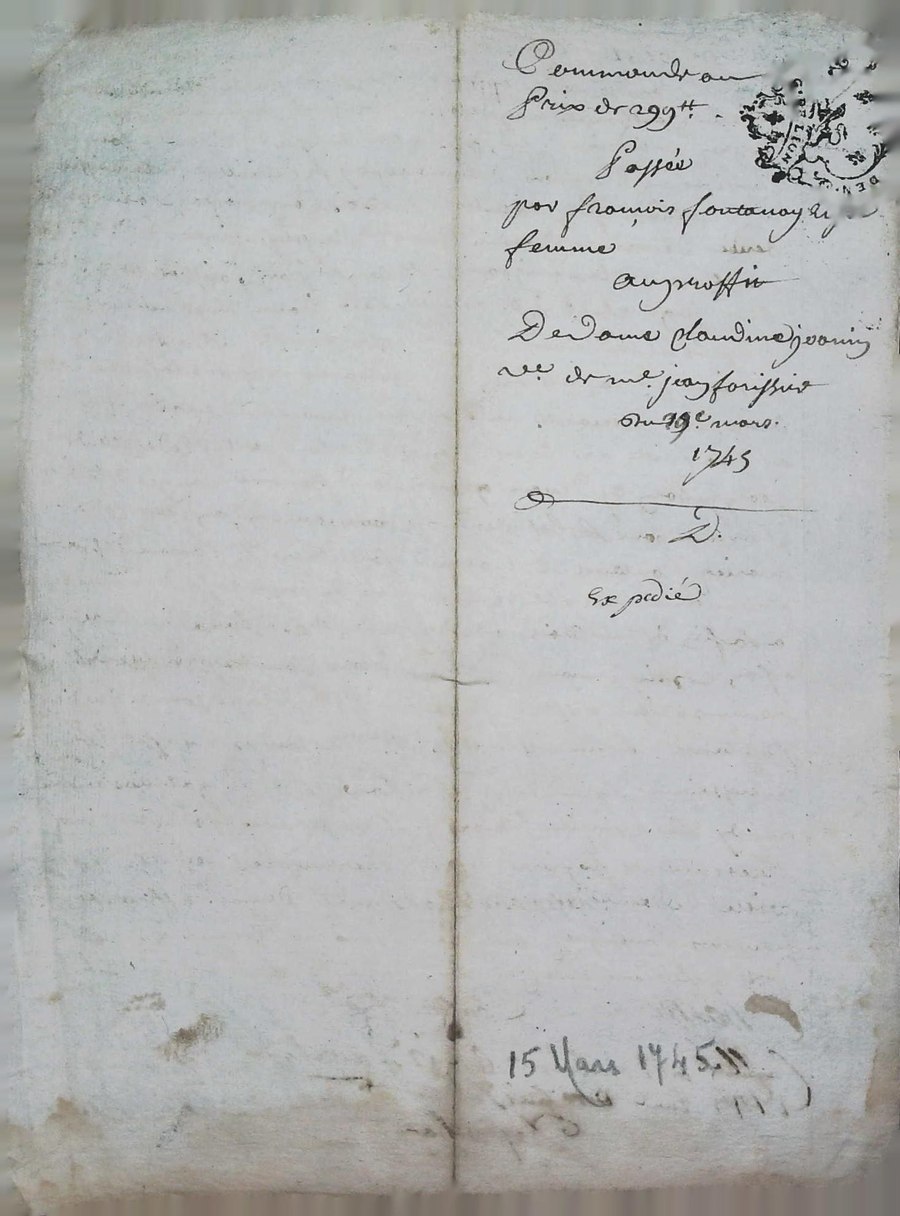 Commande au
Prix de 299 tt.
Passée
par françois fontanay et sa
femme
au proffit
De dame claudine jeanin
ve. de me. jean forissier
du 19e mars
1745
D.
Expedié
15 Mars 1745
G. DE LION
DEN.